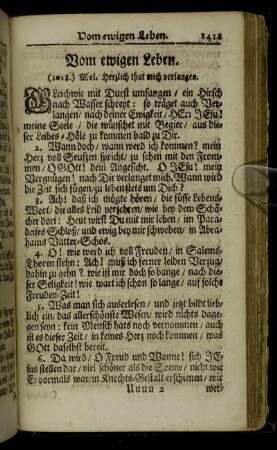 Vom ewigen Leben. 1411
Vom ewigen Leben.
(1012.) Mel. Hertzlich thut mich verlangen.
GLeichwie mit Durst umfangen / ein Hirsch
nach Wasser schreyt: so träget auch Ver-
langen / nach deiner Ewigkeit / HErr JEsu!
meine Seele / die wünschet mit Begier / aus die-
ser Leibes-Höle zu kommen bald zu Dir.
2. Wann doch / wann werd ich kommen? mein
Herz voll Seufzen spricht / zu sehen mit den From-
men / O GOtt! dein Angesicht. O JEsu! mein
Vergnügen! nach Dir verlanget mich. Wann wird
die Zeit sich fügen / zu leben stets um Dich?
3. Ach! daß ich mögte hören / die süsse Lebens-
Wort / die alles Leid verzehren / wie bey dem Schä-
cher dort! Heut wirst Du mit mir leben / im Para-
dieses Schloß / und ewig bey mir schweben / in Abra-
hams Vatter-Schos.
4. O! wie werd ich voll Freuden / in Salems
Thoren stehn: Ach! muß ich ferner leiden Verzug /
dahin zu gehn? wie ist mir doch so bange / nach die-
ser Seligkeit! wie wart ich schon so lange / auf solche
Freuden-Zeit!
5. Was man sich auserlesen / und jetzt bildt lieb-
lich ein: das allerschönste Wesen / wird nichts da-
gegen seyn: kein Mensch hats noch vernommen / auch
ist es dieser Zeit / in keines Herz noch kommen / was
GOtt daselbst bereit.
6. Da wird / O Freud und Wonne! sich JE-
sus stellen dar / viel schöner als die Sonne / nicht wie
Er vormals war / in Knechts-Gestalt erschienen / wir
Uuuu 2 wer-